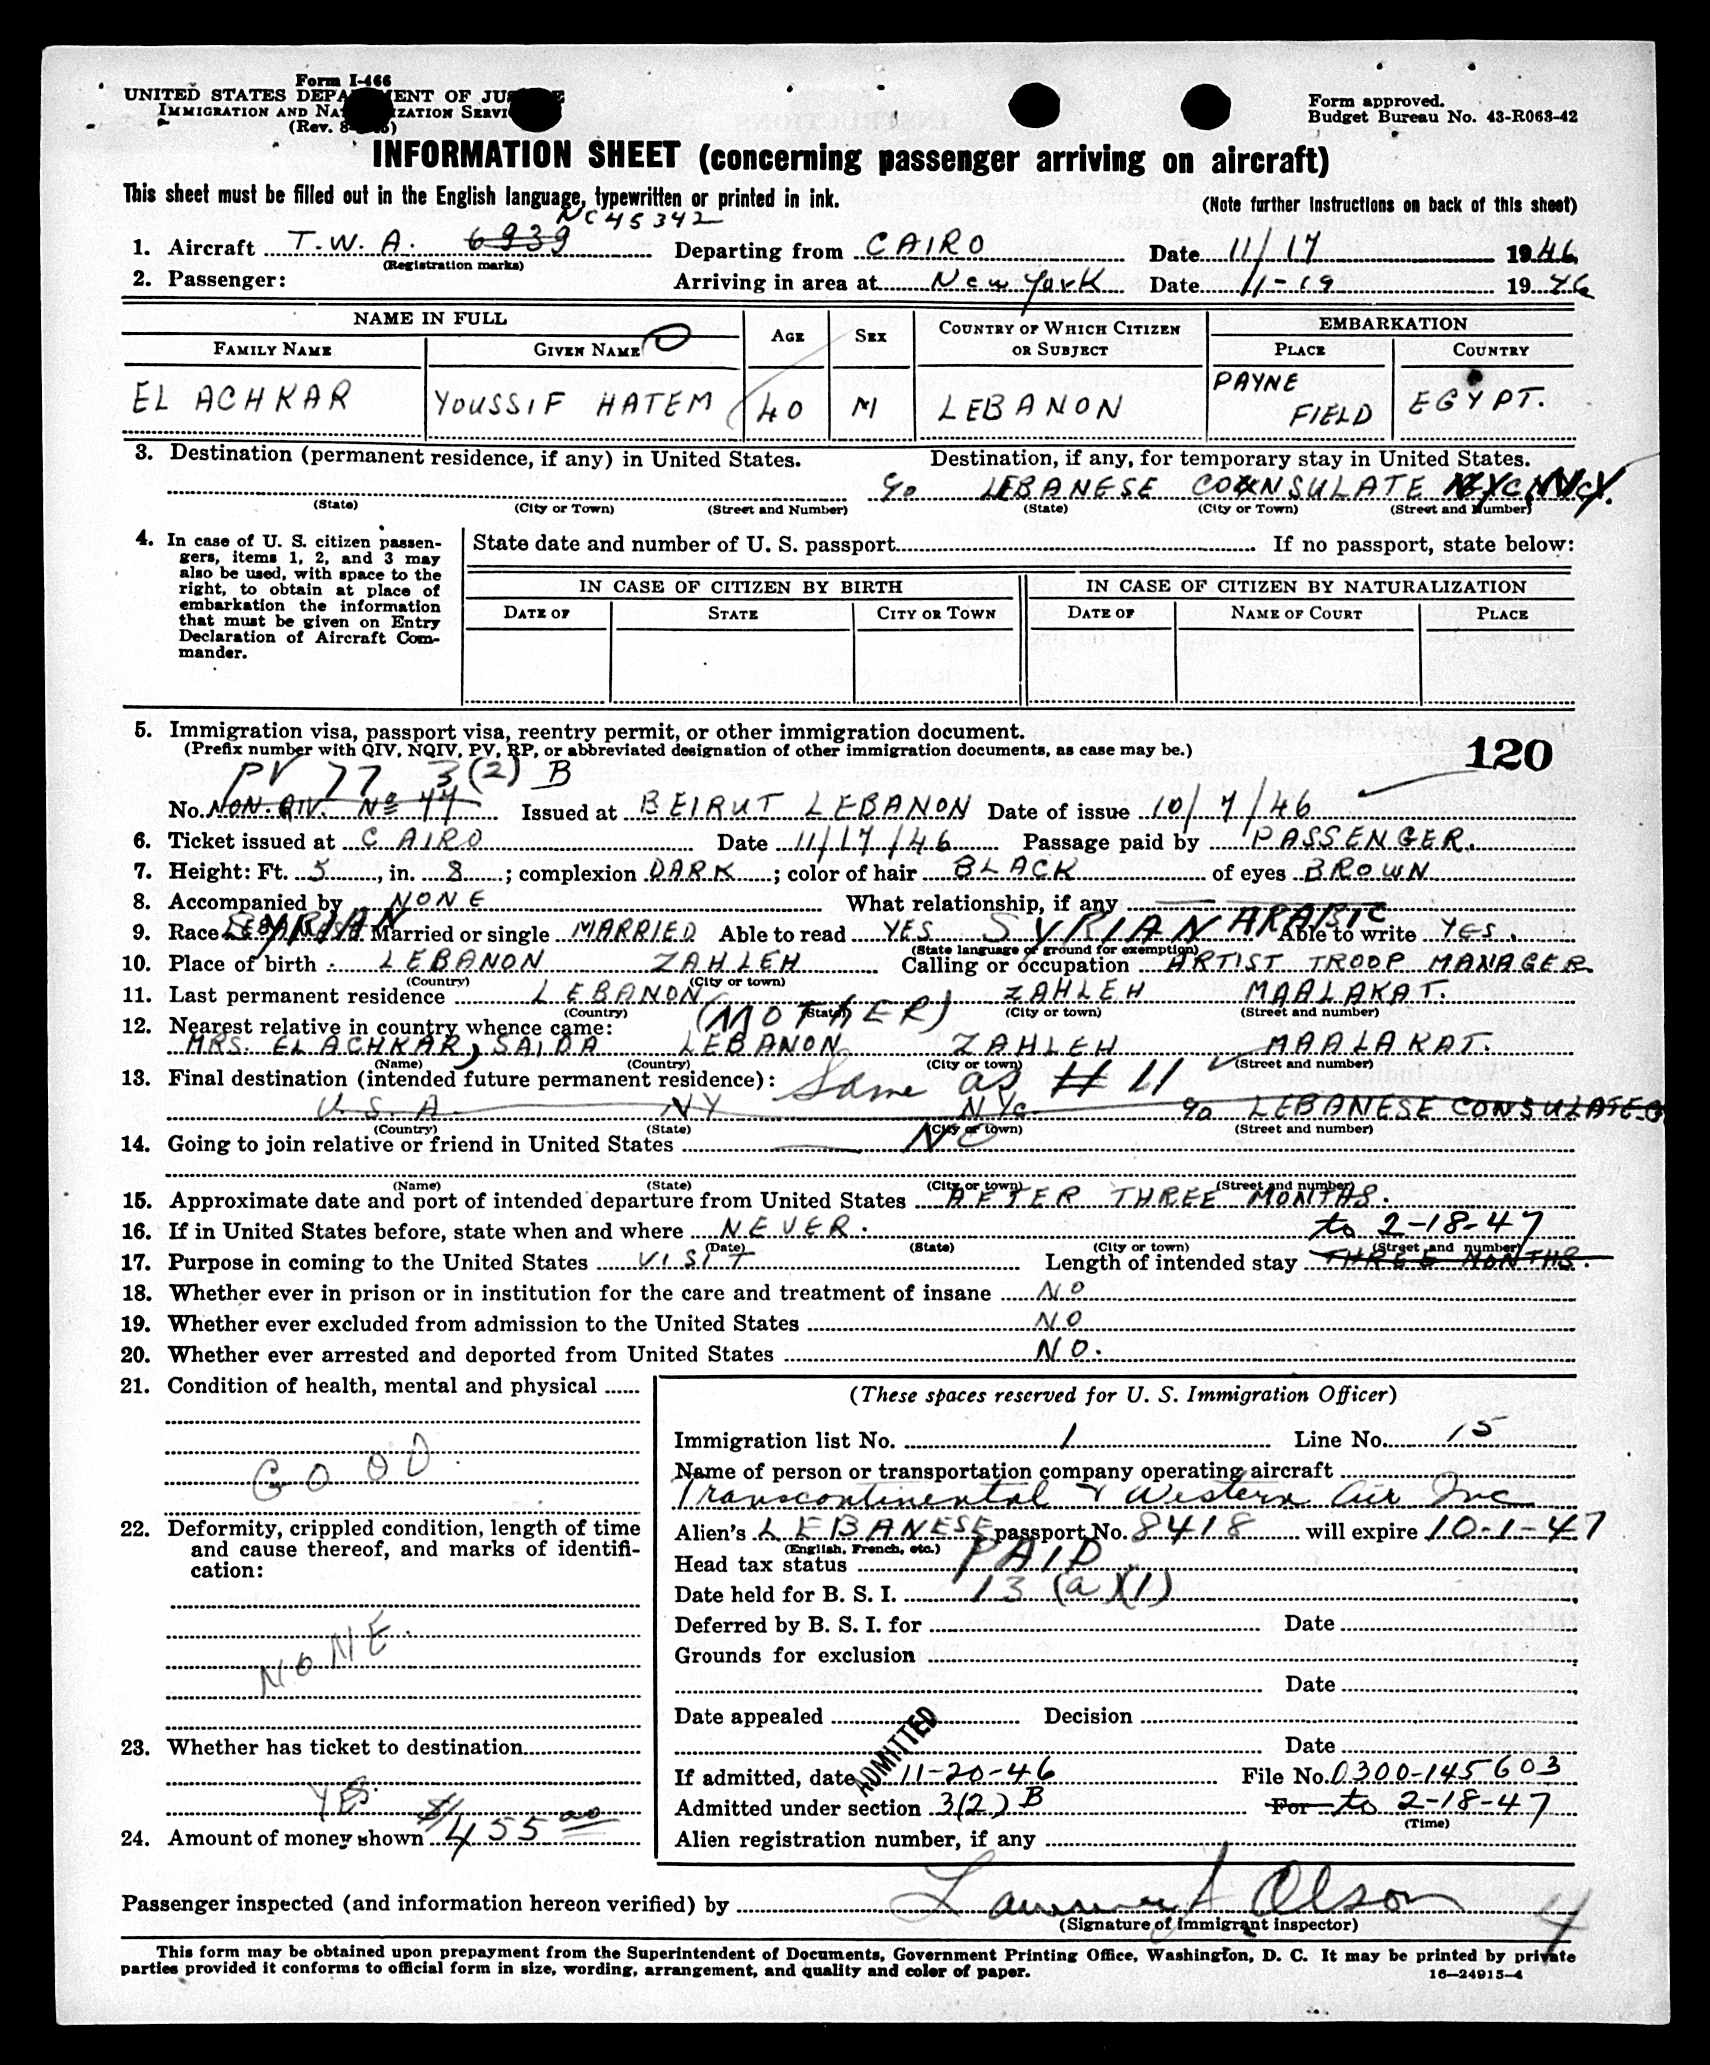 Form I-466
UNITED STATES DEPARTMENT OF JUSTICE
IMMIGRATION AND NATURALIZATION SERVICE
(Rev. 8- )
Form approved.
Budget Bureau No. 43-R063-42
INFORMATION SHEET (concerning passenger arriving on aircraft)
This sheet must be filled out in the English language, typewritten or printed in ink.
(Note further instructions on back of this sheet)
NC45342
1. Aircraft T.W.A. 6939 Departing from CAIRO Date 11/17 1946
(Registration marks)
2. Passenger: Arriving in area at New York Date 11-19 1946
NAME IN FULL
FAMILY NAME GIVEN NAME AGE SEX COUNTRY OF WHICH CITIZEN OR SUBJECT EMBARKATION
PLACE COUNTRY
EL ACHKAR YOUSSIF HATEM 40 M LEBANON PAYNE FIELD EGYPT.
3. Destination (permanent residence, if any) in United States. Destination, if any, for temporary stay in United States.
c/o LEBANESE CONSULATE NYC, N.Y.
(State) (City or Town) (Street and Number) (State) (City or Town) (Street and Number)
4. In case of U. S. citizen passengers, items 1, 2, and 3 may also be used, with space to the right, to obtain at place of embarkation the information that must be given on Entry Declaration of Aircraft Commander.
State date and number of U. S. passport If no passport, state below:
IN CASE OF CITIZEN BY BIRTH IN CASE OF CITIZEN BY NATURALIZATION
DATE OF STATE CITY OR TOWN DATE OF NAME OF COURT PLACE
5. Immigration visa, passport visa, reentry permit, or other immigration document.
(Prefix number with QIV, NQIV, PV, RP, or abbreviated designation of other immigration documents, as case may be.)
120
PV 77 3(2) B
No. NON. QIV. Nº 77 Issued at BEIRUT LEBANON Date of issue 10/7/46
6. Ticket issued at CAIRO Date 11/17/46 Passage paid by PASSENGER.
7. Height: Ft. 5, in. 8; complexion DARK; color of hair BLACK of eyes BROWN
8. Accompanied by NONE What relationship, if any
9. Race LEBANESE SYRIAN Married or single MARRIED Able to read YES SYRIAN ARABIC Able to write YES.
(State language or ground for exemption)
10. Place of birth LEBANON ZAHLEH Calling or occupation ARTIST TROOP MANAGER
(Country) (City or town)
11. Last permanent residence LEBANON ZAHLEH MAALAKAT.
(Country) (State) (City or town) (Street and number)
12. Nearest relative in country whence came: (MOTHER)
MRS. EL ACHKAR, SAIDA LEBANON ZAHLEH MAALAKAT.
(Name) (Country) (City or town) (Street and number)
13. Final destination (intended future permanent residence): Same as # 11
U.S.A. NY NYC c/o LEBANESE CONSULATE
(Country) (State) (City or town) (Street and number)
14. Going to join relative or friend in United States NO
(Name) (State) (City or town) (Street and number)
15. Approximate date and port of intended departure from United States AFTER THREE MONTHS.
16. If in United States before, state when and where NEVER. to 2-18-47
(Date) (State) (City or town) (Street and number)
17. Purpose in coming to the United States VISIT Length of intended stay THREE MONTHS.
18. Whether ever in prison or in institution for the care and treatment of insane NO
19. Whether ever excluded from admission to the United States NO
20. Whether ever arrested and deported from United States NO.
21. Condition of health, mental and physical
GOOD.
22. Deformity, crippled condition, length of time and cause thereof, and marks of identification:
NONE.
23. Whether has ticket to destination
YES.
24. Amount of money shown $/455 00
(These spaces reserved for U. S. Immigration Officer)
Immigration list No. 1 Line No. 15
Name of person or transportation company operating aircraft
Transcontinental & Western Air Inc
Alien's LEBANESE passport No. 8418 will expire 10-1-47
(English, French, etc.)
Head tax status PAID
Date held for B. S. I. 13 (a)(1)
Deferred by B. S. I. for Date
Grounds for exclusion
Date
Date appealed Decision
Date
ADMITTED
If admitted, date 11-20-46 File No. 0300-145603
Admitted under section 3(2) B For to 2-18-47
(Time)
Alien registration number, if any
Passenger inspected (and information hereon verified) by Lawrence A Olson
(Signature of immigrant inspector)
4
This form may be obtained upon prepayment from the Superintendent of Documents, Government Printing Office, Washington, D. C. It may be printed by private
parties provided it conforms to official form in size, wording, arrangement, and quality and color of paper.
16—24915-4